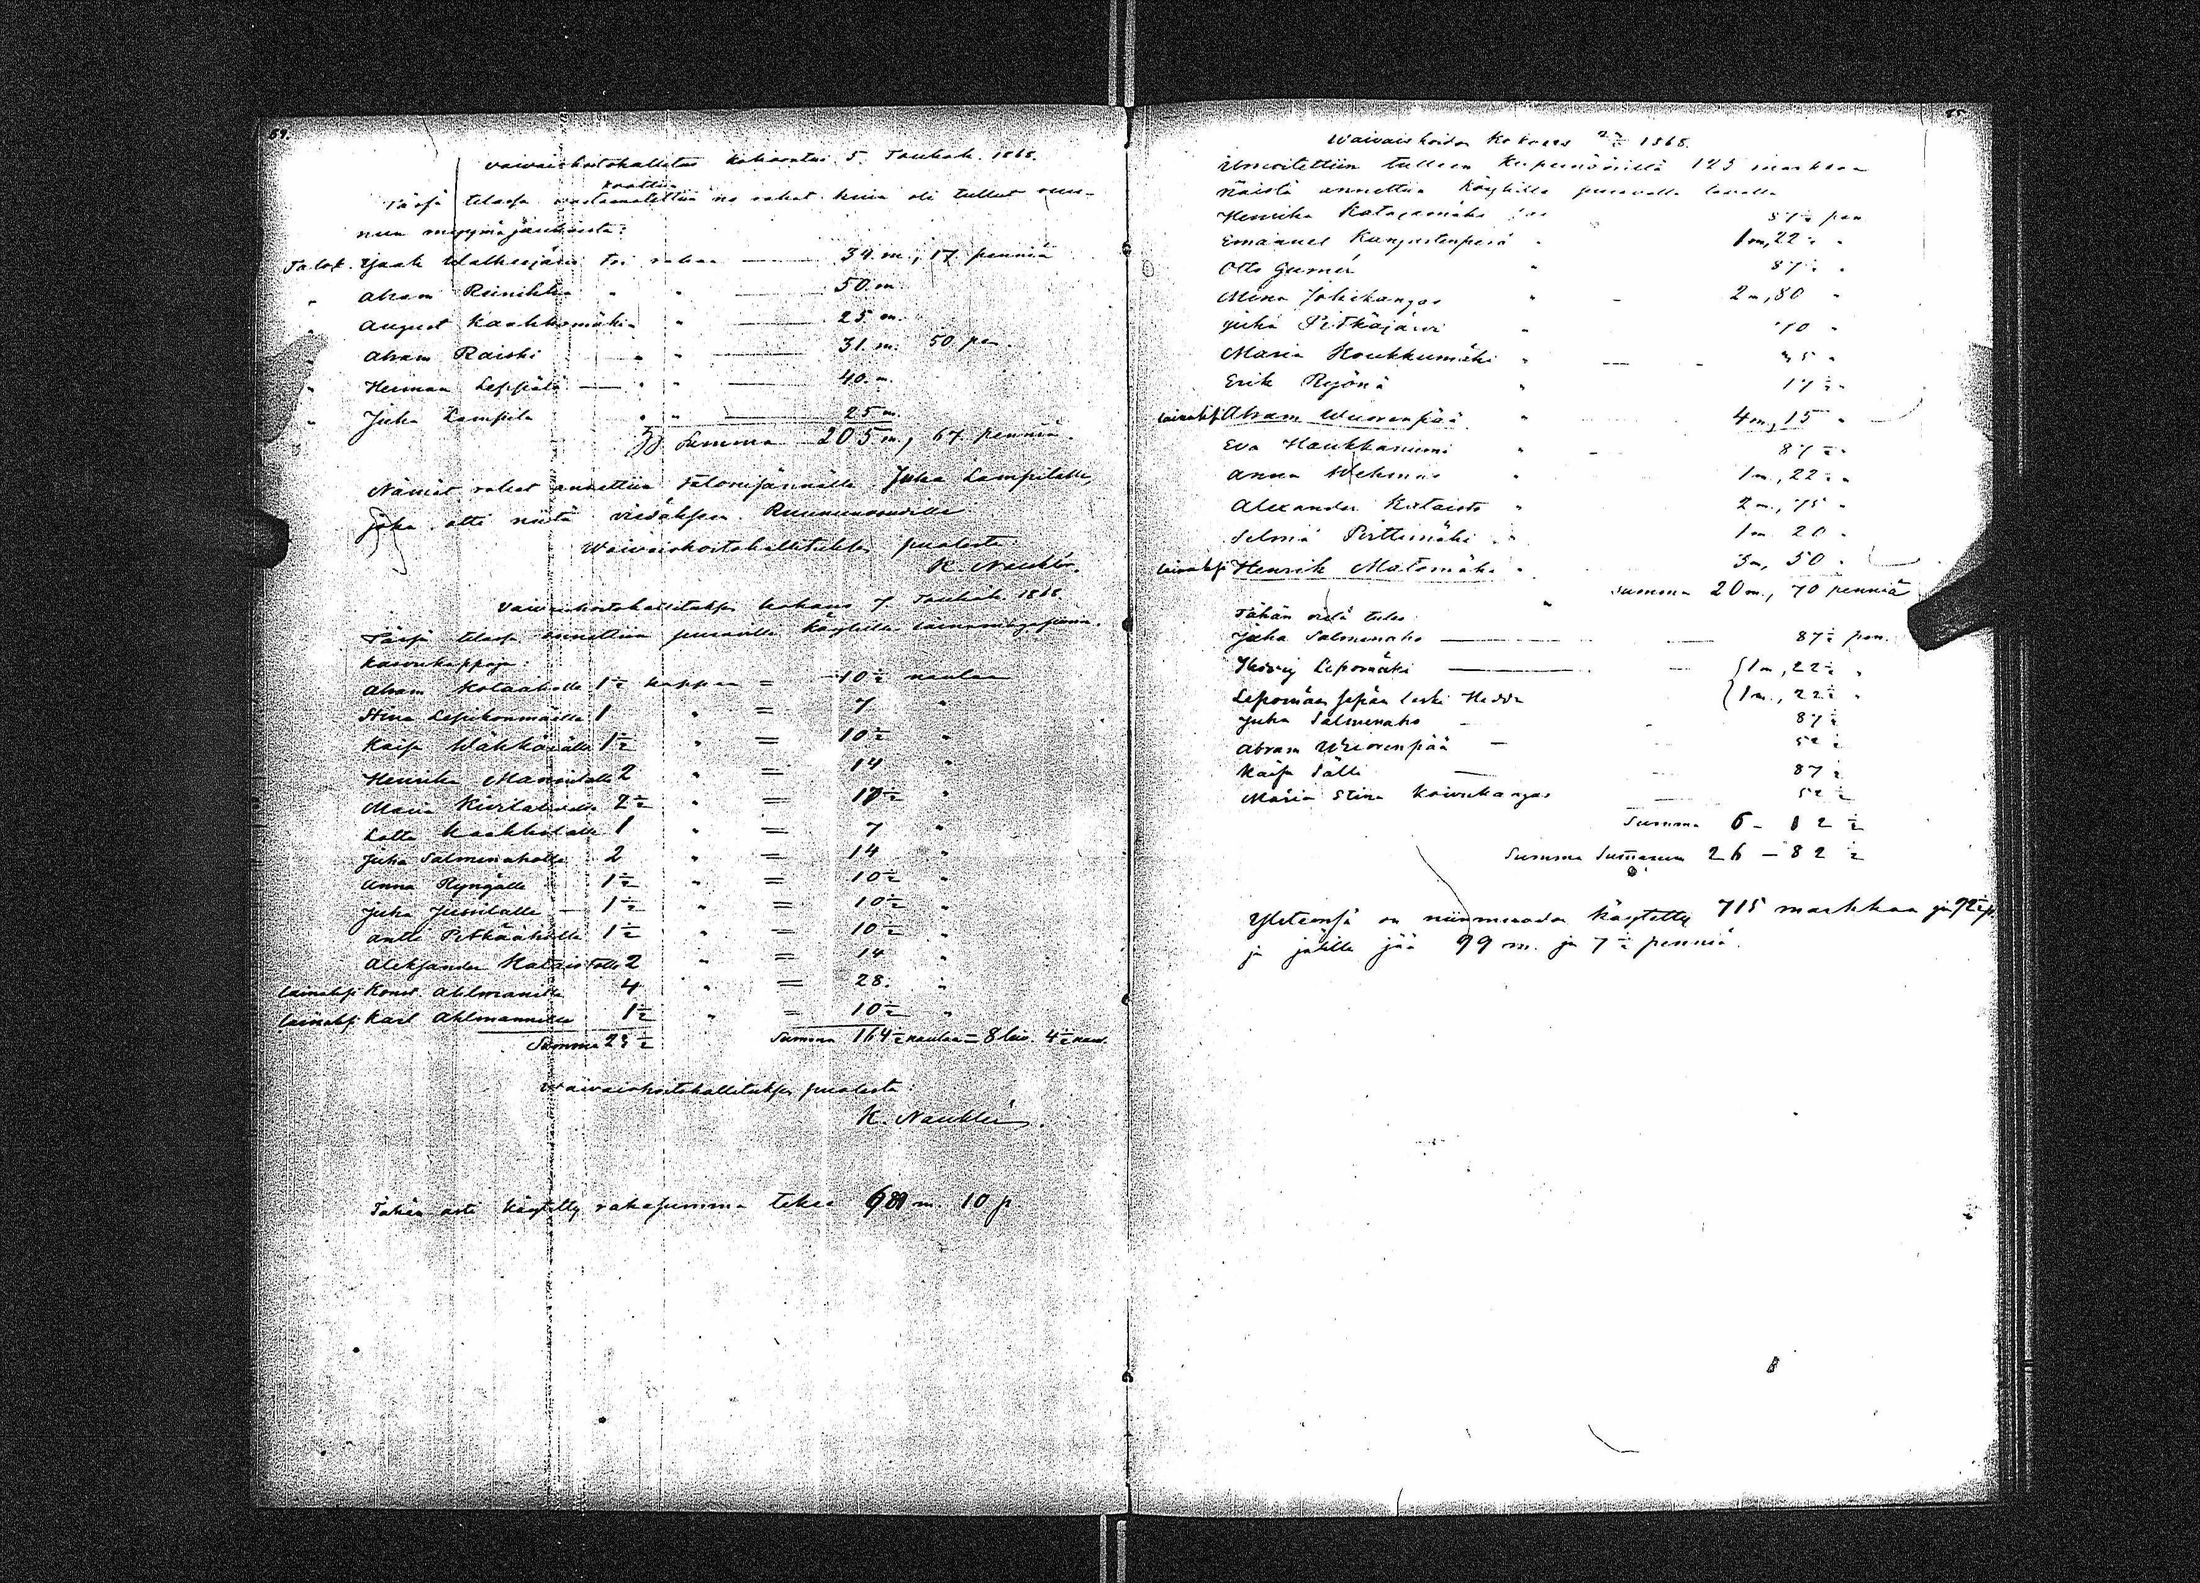 54.
Vaivaishoitohallitus kokoontui 5. Toukok. 1868.
koottiin
Tässä tilassa vastaanotettiin ne rahat kuin oli tullut ruu-
nun myymä jauhoista:
Talok. Isak Walkeajärvi toi rahaa — 34. m., 17 penniä
" Abram Reinikka " " — 50. m.
" August Kaakkomäki " " — 25. m.
" Abram Raiski " " — 31. m. 50 pen.
" Herman Leppälä — " " — 40. m.
" Juha Lampila " " — 25 m.
Summa 205 m., 67 penniä.
Nämät rahat annettiin talonisännälle Juha Lampilalle,
joka otti niitä viedäksen Ruununvoudille
Waivaishoitohallituksen puolesta
K. Nauklér.
Vaivaishoitohallituksen kokous 7. Toukok. 1868.
Tässä tilassa annettiin pitäjän köyhille lainamagasiinin
kauhakappoja:
Abram Kotaaholle 1½ kappaa = 10½ naulaa
Stina Lepikonmäelle 1 " = 7 "
Kaisa Wähkärälle 1½ " = 10½ "
Henrika Mannilalle 2 " = 14 "
Maria Kivilahdelle 2½ " = 17½ "
Lotta Kaakkolalle 1 " = 7 "
Juha Salmenaholle 2 " = 14 "
Anna Ryngälle 1½ " = 10½ "
Juha Jussilalle — 1½ " = 10½ "
Antti Pitkäaholle 1½ " = 10½ "
Aleksander Kataistolle 2 " = 14 "
lainaksi Konst. Ahlmanille 4 " = 28. "
lainaksi Karl Ahlmannille 1½ " = 10½ "
Summa 23½ Summa 164½ naulaa = 8 leiv. 4½ naul.
Waivaishoitohallituksen puolesta:
K. Nauklér.
Tähän asti käytetty rahasumma tekee 689 m. 10 p
55
Waivaishoidon Kokous 1868.
Ilmoitettiin tulleen Kuvernööriltä 125 markkaa
Näistä annettiin köyhille seuraavalla tavalla
Henrika Katajamäki sai 87½ pen
Emanuel Kungastenpesä " 1 m, 22½ "
Otto Gumér " 87½ "
Mina Jokikangas " 2 m, 80 "
Juha Pitkäjärvi " 70 "
Maria Koukkumäki " 35 "
Erik Ryönä " 17½ "
lainaksi Abram Wuorenpää " 4 m, 15 "
Eva Haukkaniemi " 87½ "
Anna Wehmas " 1 m., 22½ "
Alexander Kataisto " 2 m., 75 "
Selma Perttimäki " 1 m. 20 "
lainaksi Henrik Matomäki " 3 m, 50 "
Summa 20 m., 70 penniä
Tähän vielä tulee:
Juha Salmenaho — 87½ pen.
Lepomäki — 1 m, 22½ "
Lepomäen Jepän leski Hedda 1 m., 22½ "
Juha Salmenaho — 87½
Abram Wuorenpää — 52½
Kaisa Sälli — 87½
Maria Stina Koivukangas — 52½
Summa 6 - 12½
Summa Summarum 26 - 82½
Yhteensä on niinmuodon käytetty 715 markkaa ja 92½ p.
ja jälille jää 99 m. ja 7½ penniä.